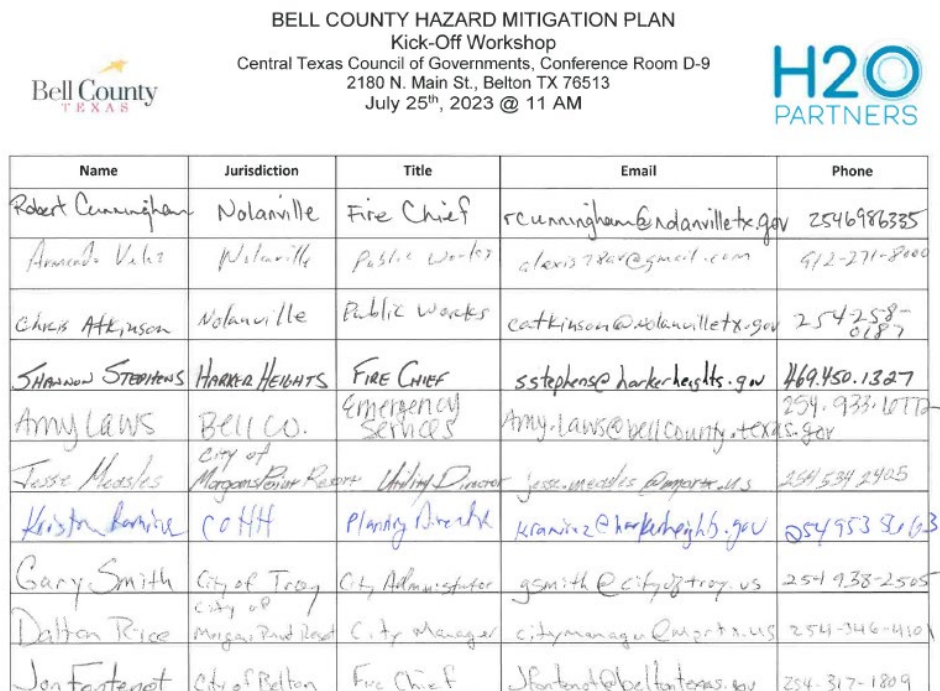 BELL COUNTY HAZARD MITIGATION PLAN
Kick-Off Workshop
Central Texas Council of Governments, Conference Room D-9
2180 N. Main St., Belton TX 76513
July 25th, 2023 @ 11 AM
Bell County
TEXAS
H2O
PARTNERS
Name Jurisdiction Title Email Phone
Robert Cunningham Nolanville Fire Chief rcunningham@nolanvilletx.gov 2546986335
Armando Velez Nolanville Public Works 912-271-8000
Chris Atkinson Nolanville Public Works catkinson@nolanvilletx.gov 254-258-
0187
SHANNON STEPHENS HARKER HEIGHTS FIRE CHIEF sstephens@harkerheights.gov 469.450.1327
Amy Laws Bell Co. Emergency Services Amy.Laws@bellcounty.texas.gov
Jesse Measles City of Morgans Point Resort Utility Director 254 534 2405
COHH Planning Director kramirez@harkerheights.gov
Gary Smith City of Troy City Administrator gsmith@cityoftroy.us 254 938-2505
Dalton Rice City of Morgans Point Resort City Manager 254-346-4101
Jon Fontenot City of Belton Fire Chief Jfontenot@beltontexas.gov 254-317-1809